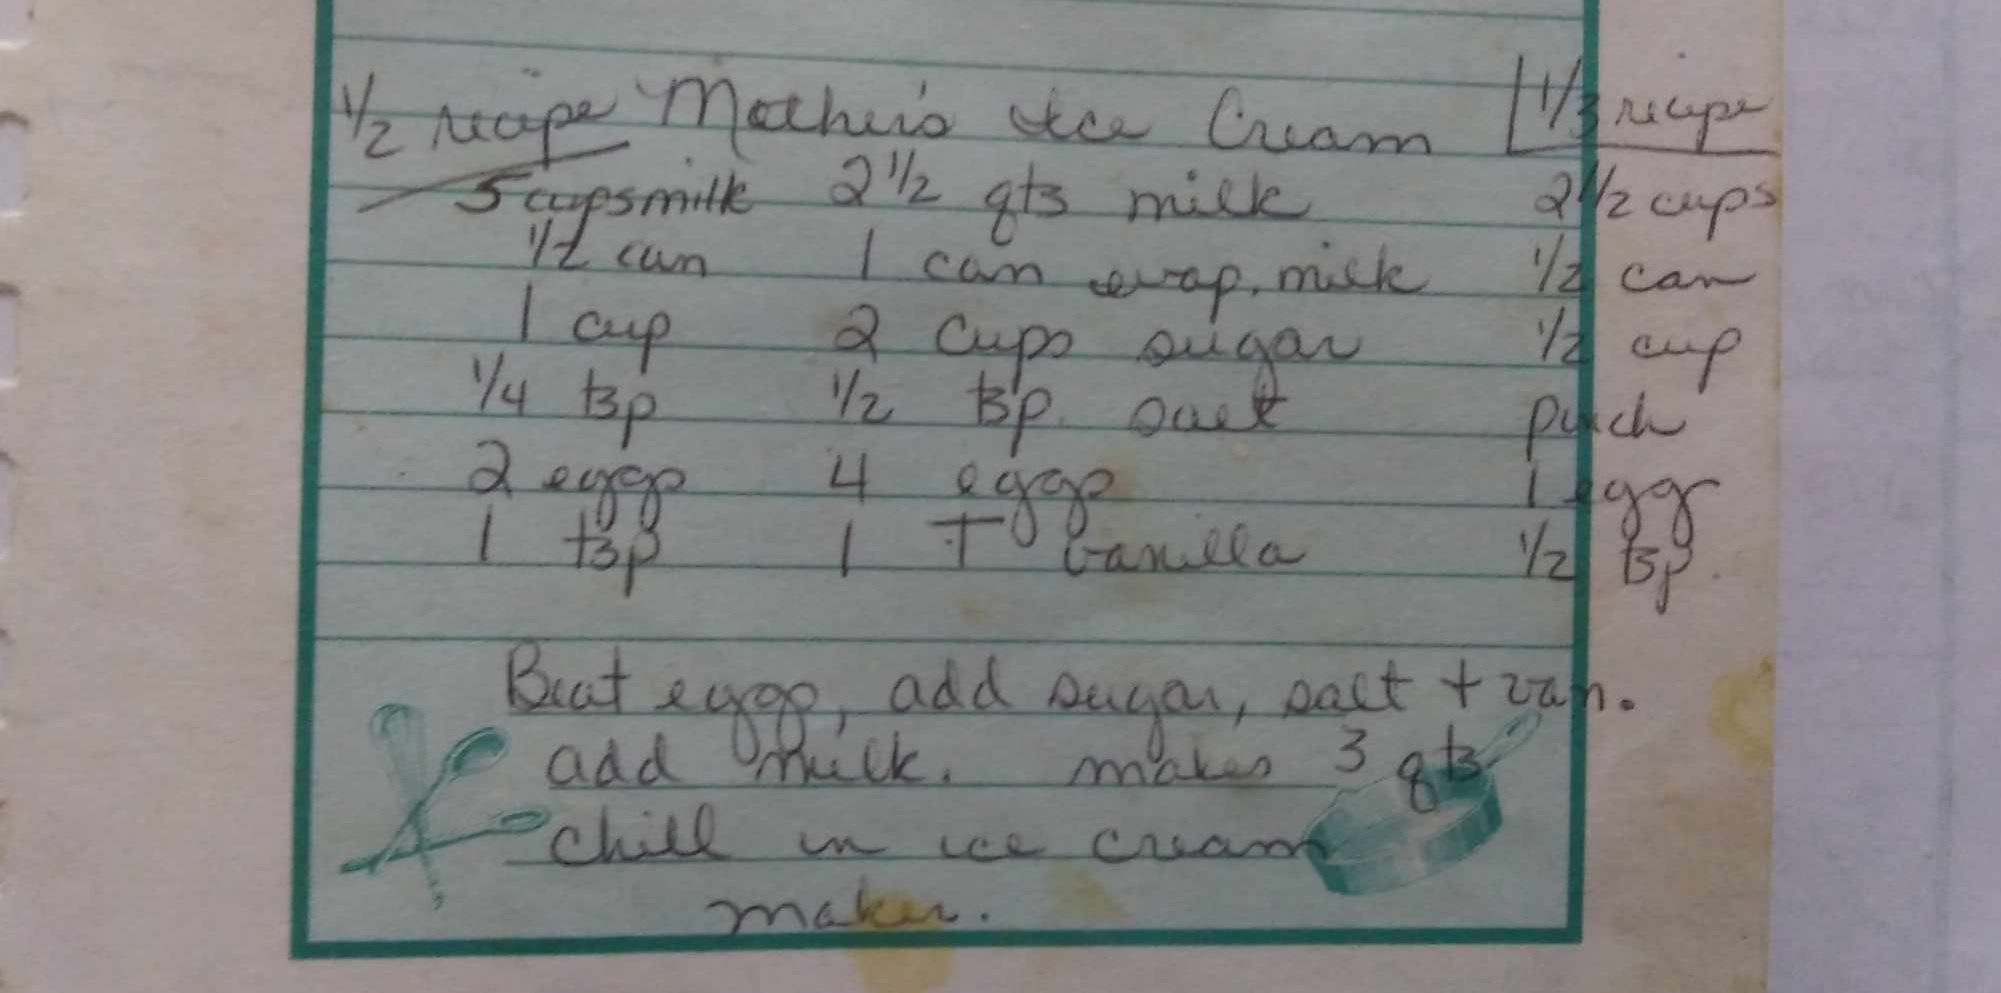 1/2 recipe Mother's Ice Cream 1/3 recipe
5 cups milk 2 1/2 qts milk 2 1/2 cups
1/2 can 1 can evap. milk 1/2 can
1 cup 2 cups sugar 1/2 cup
1/4 tsp 1/2 tsp. salt pinch
2 eggs 4 eggs 1 egg
1 tsp 1 T vanilla 1/2 tsp.
Beat eggs, add sugar, salt + van.
add milk. makes 3 qts
chill in ice cream
maker.